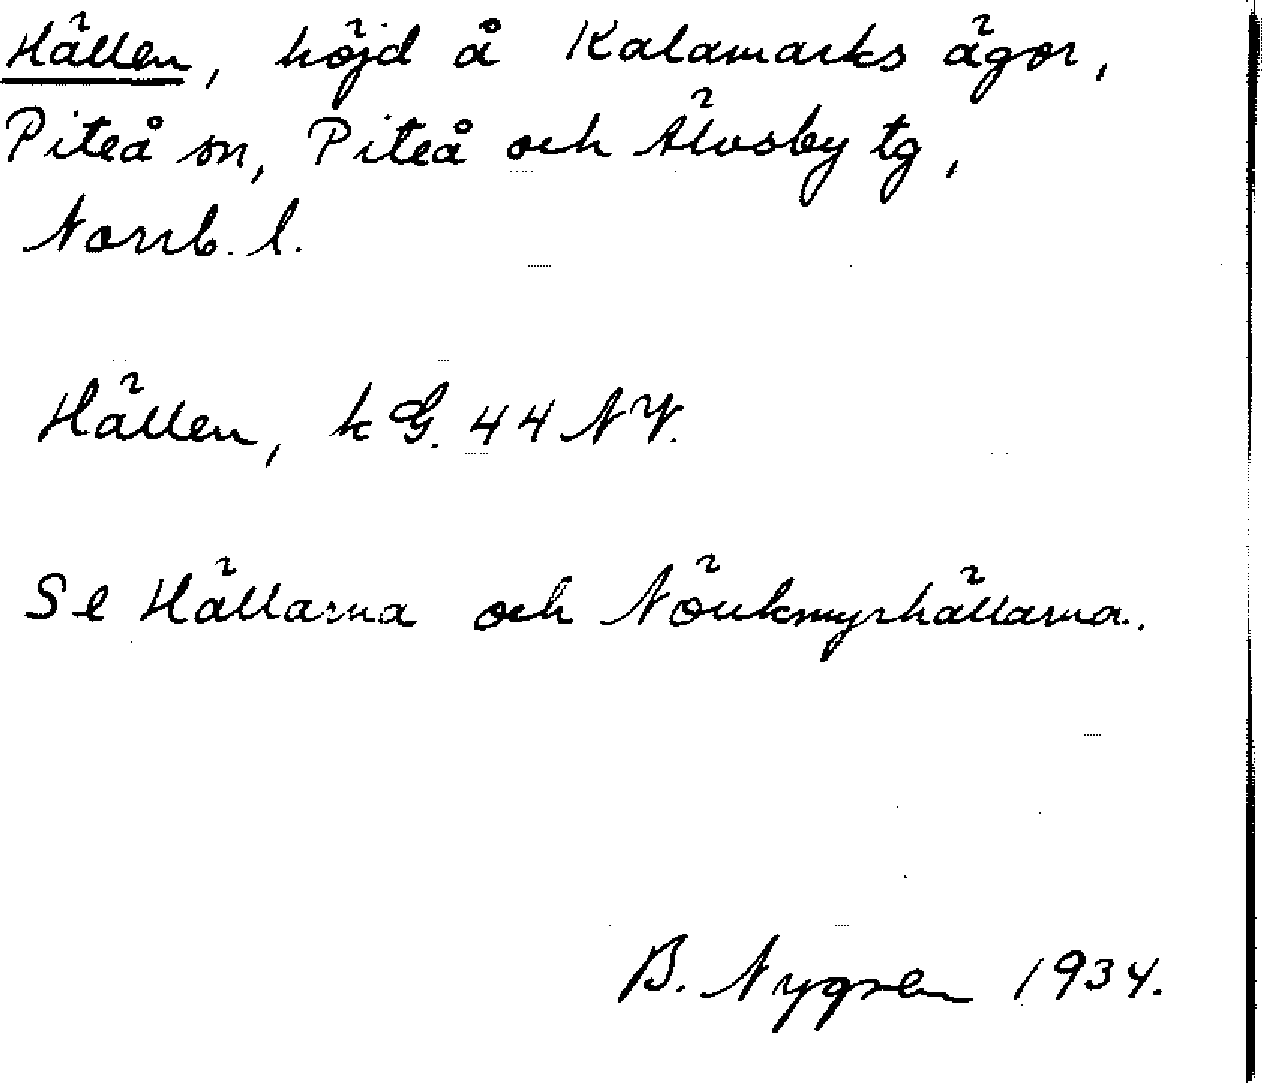 Hällen, höjd å Kalamarks ägor,
Piteå sn, Piteå och Älvsby tg,
Norrb. l.
Hällen, k G. 44 NV.
Se Hällarna och
B. Nygren 1934.